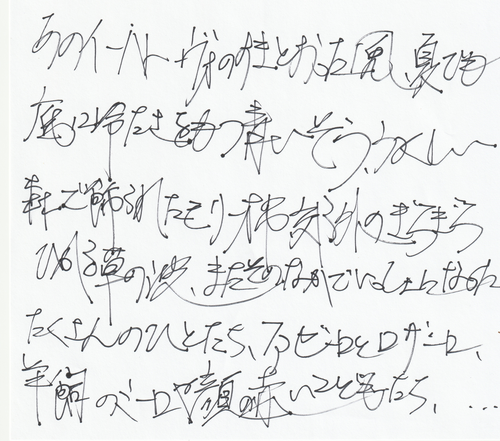 あのイーハトーヴォのすきとおった風、夏でも
底に冷たさをもつ青いそら、うつくしい
森で飾られたモリーオ市、郊外のぎらぎら
ひかる草の波、またそのなかでいっしょになった
たくさんのひとたち、ファゼーロとロザーロ、
羊飼のミーロや顔の赤いこどもたち、…